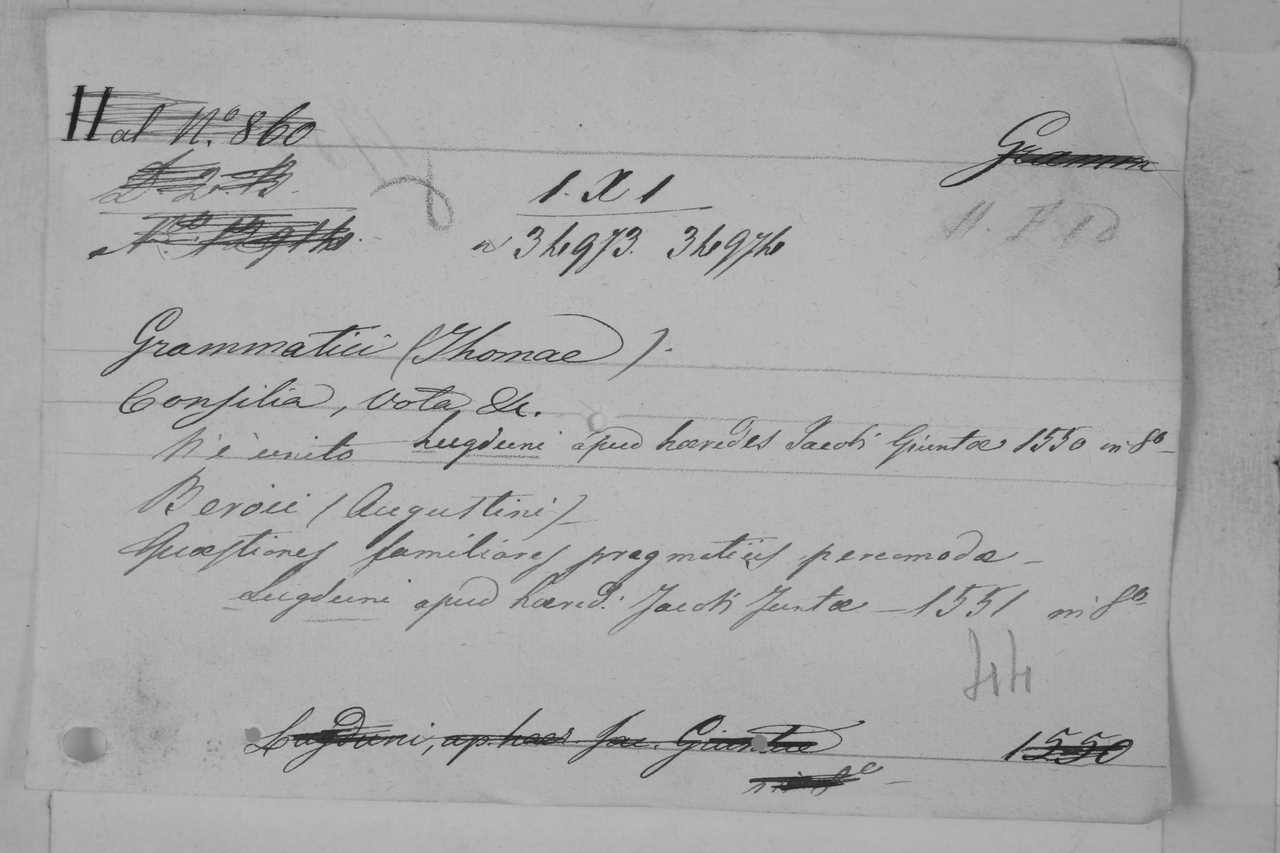 al N.º 860
Gramm
1. X 1
n 34973. 34974
Grammatici (Thomae).
Consilia, vota, &c.
Vi è unito Lugduni apud hæredes Jacobi Giuntæ 1550 in 8º
Beroii (Augustini)
Quæstiones familiares pragmaticis percomodæ -
Lugduni apud hæred. Jacobi Juntæ - 1551 in 8º
Lugduni, ap. hær. Jac. Giuntæ 1550
in 8º -